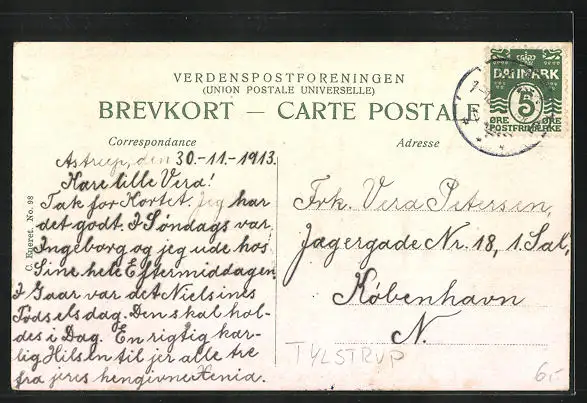 VERDENSPOSTFORENINGEN
(UNION POSTALE UNIVERSELLE)
BREVKORT — CARTE POSTALE
DANMARK
5
ØRE ØRE
POSTFRIMÆRKE
Correspondance
Adresse
Astrup, den 30-11-1913.
Kære lille Vera!
Tak for Kortet. Jeg har
det godt. I Søndags var
Ingeborg og jeg ude hos
Sine hele Eftermiddagen.
I Gaar var det Nielsines
Fødselsdag. Den skal hol-
des i Dag. En rigtig kær-
lig Hilsen til jer alle tre
fra jeres hengivne Xenia.
Frk. Vera Petersen,
Jægergade Nr. 18, 1. Sal,
København
N.
TYLSTRUP
6,-
No. 98